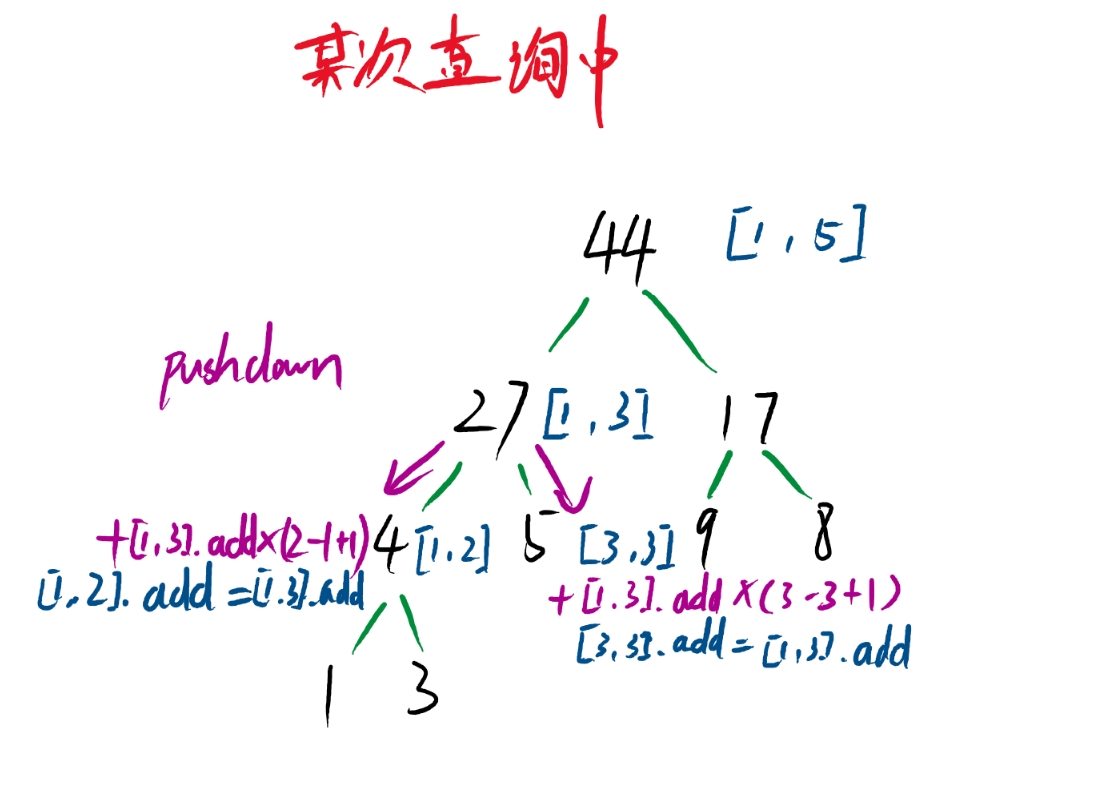 某次查询中
44 [1,5]
pushdown
27 [1,3] 17
+[1,3].add×(2-1+1) 4 [1,2] 5 [3,3] 9 8
[1,2].add=[1.3].add +[1.3].add×(3-3+1)
[3,3].add=[1,3].add
1 3